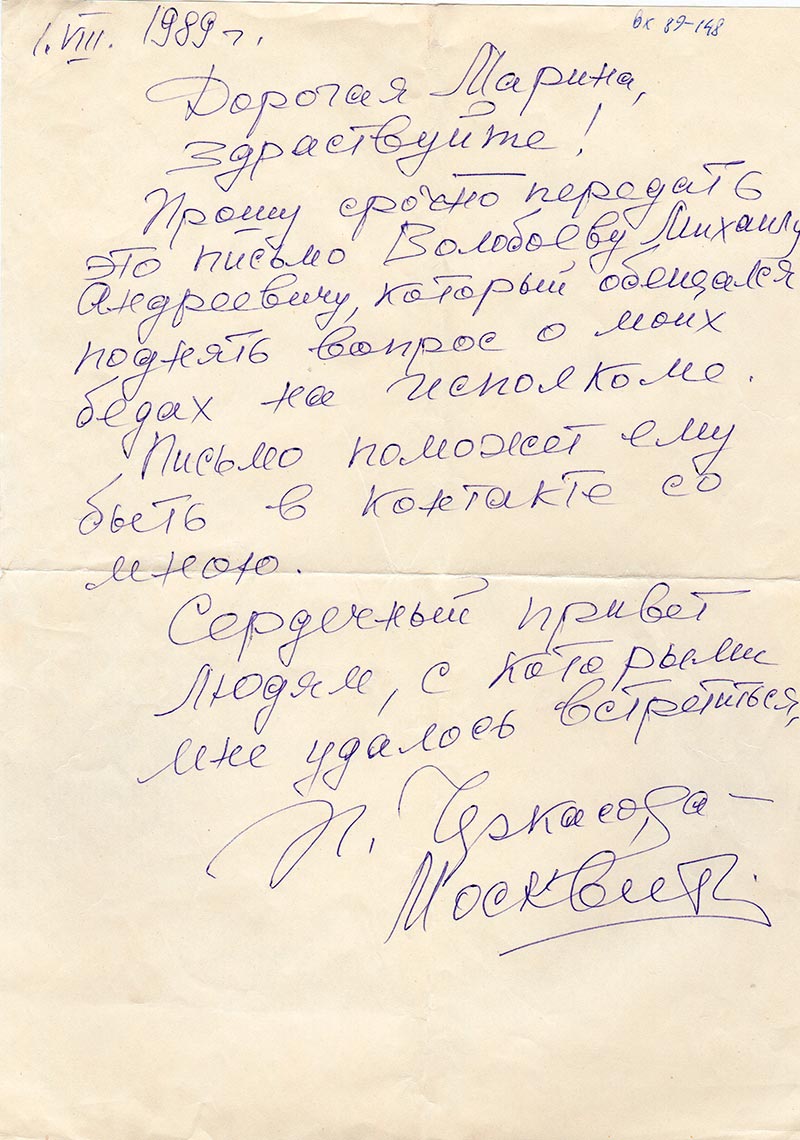 1. VIII. 1989 г.
вх 89-148
Дорогая Марина,
здравствуйте!
Прошу срочно передать
это письмо Волобоеву Михаилу
Андреевичу, который обещался
поднять вопрос о моих
бедах на исполкоме.
Письмо поможет ему
быть в контакте со
мною.
Сердечный привет
людям, с которыми
мне удалось встретиться,
Черкасова-
Москвит.